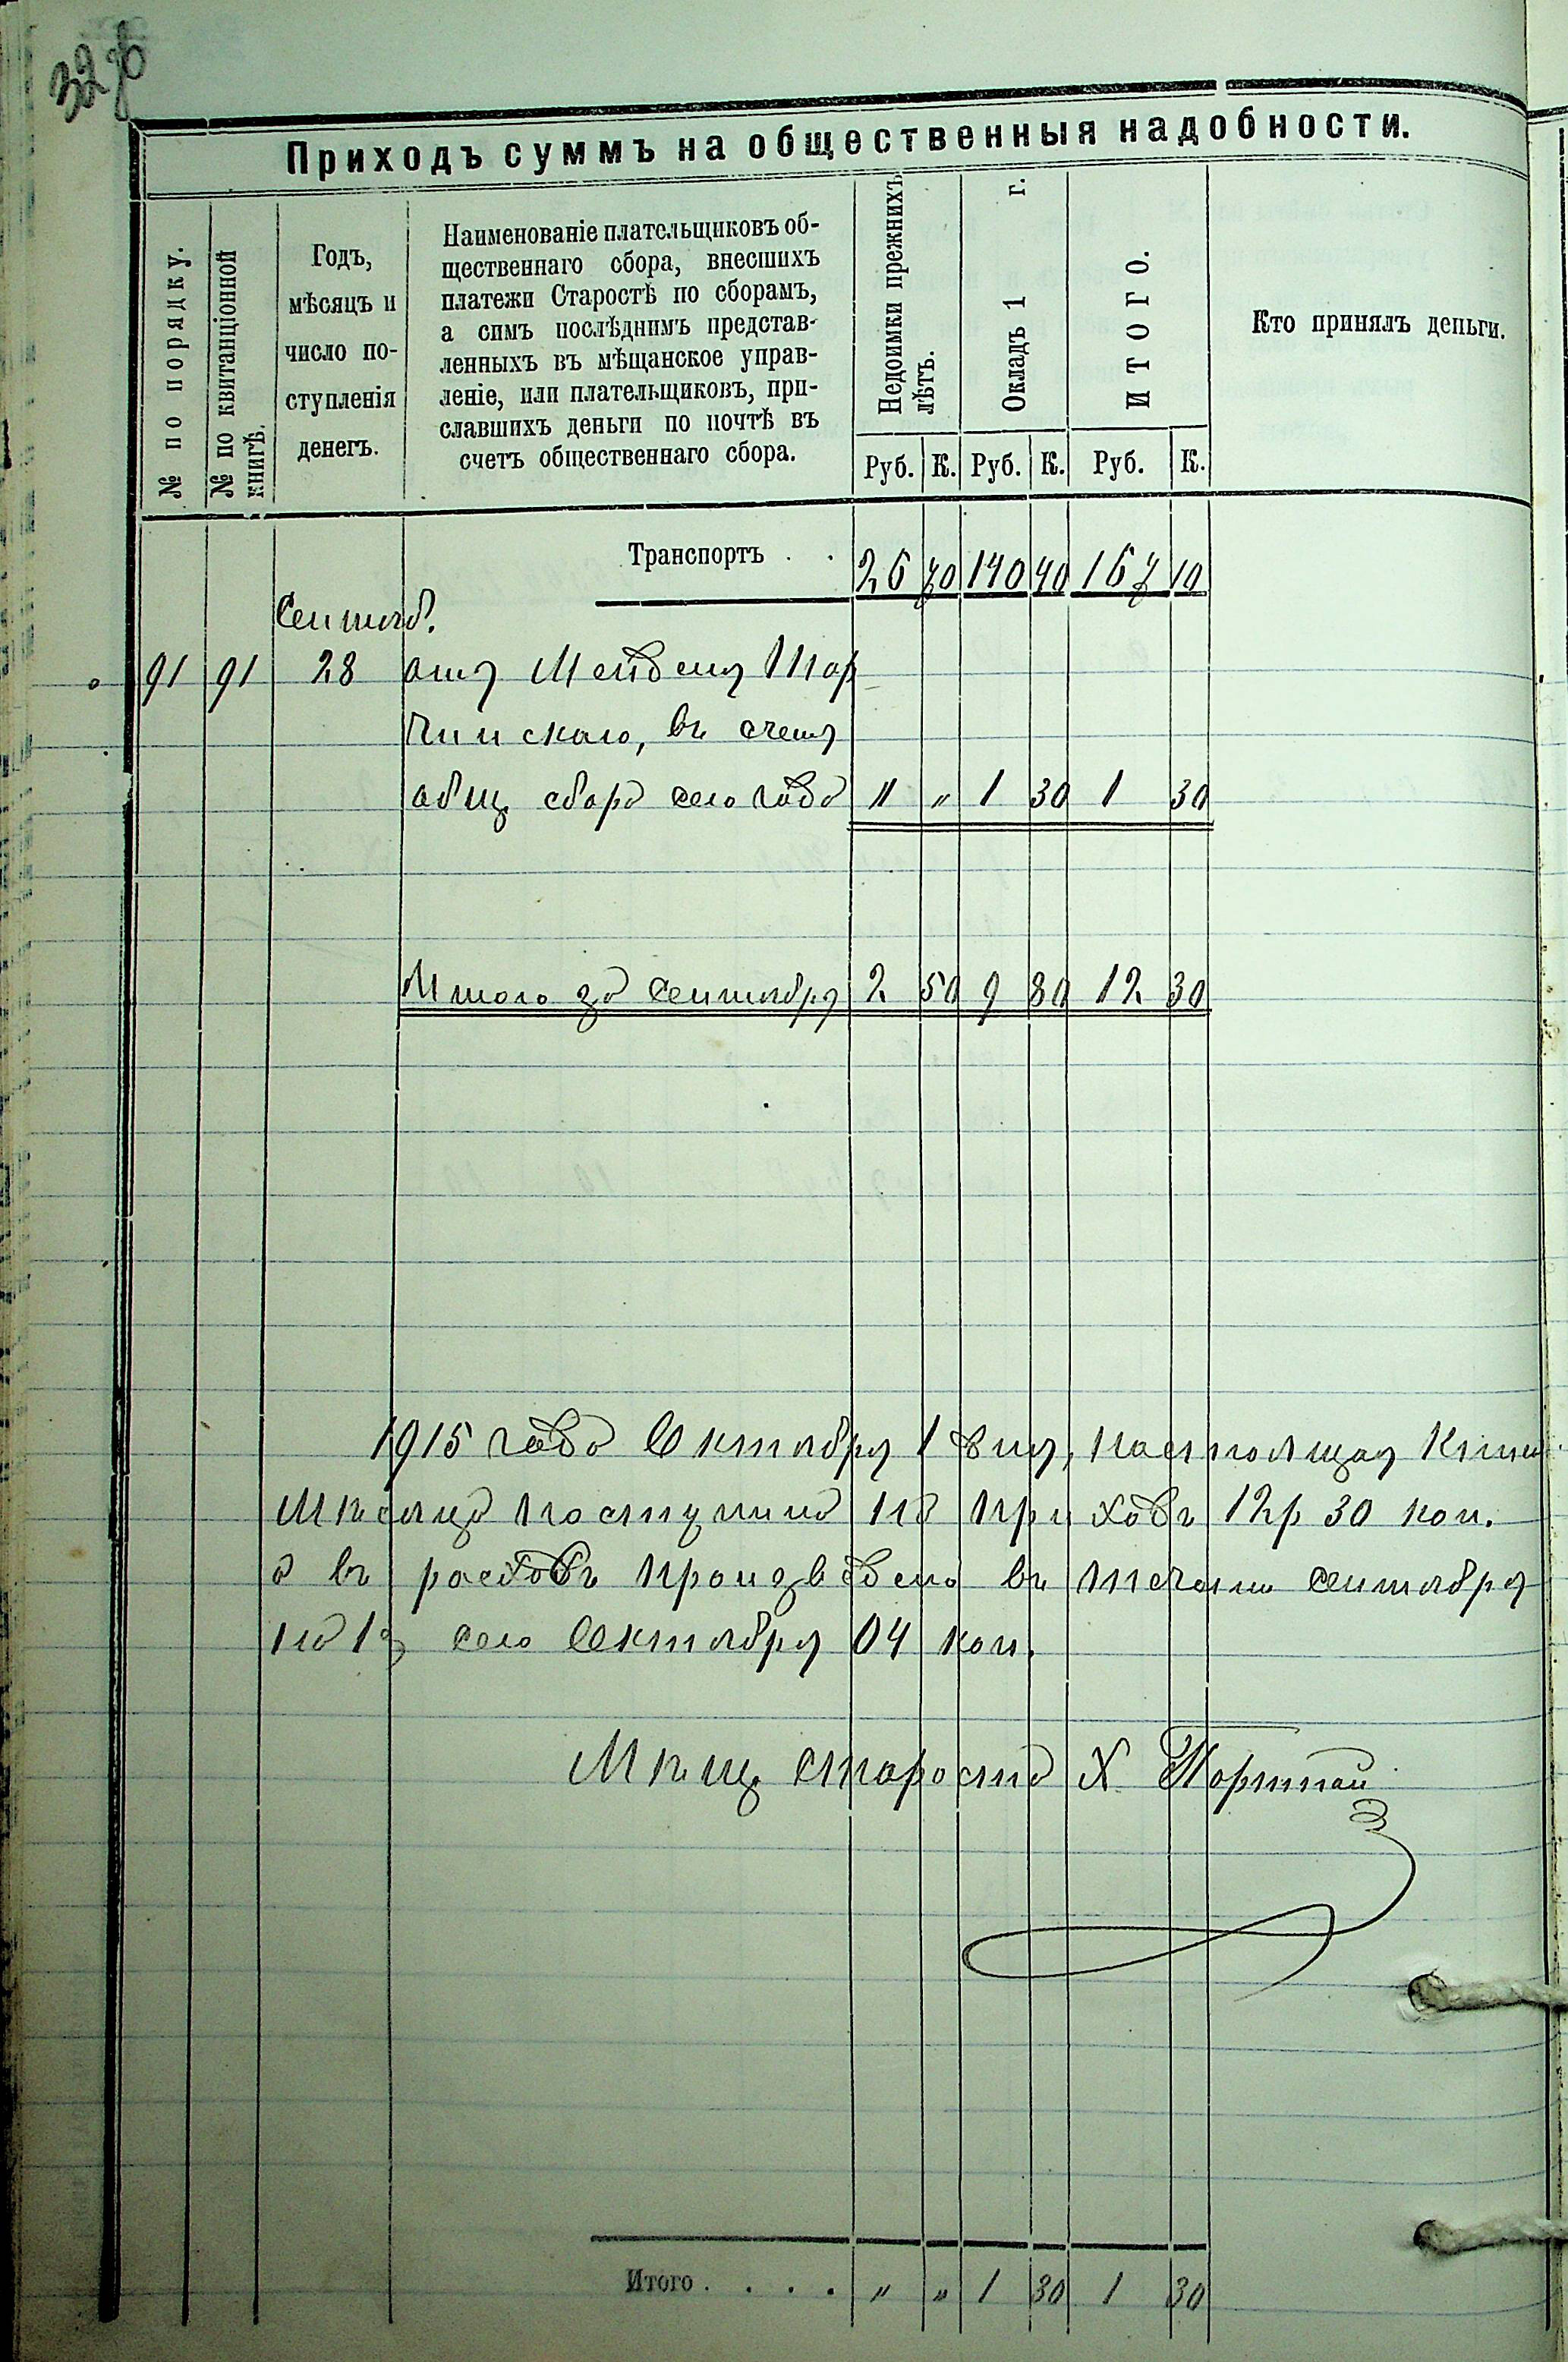 32 об
Приходъ суммъ на общественныя надобности.
№ по порядку.
№ по квитанціонной книгѣ.
Годъ,
мѣсяцъ и
число по-
ступленія
денегъ.
Наименованіе плательщиковъ об-
щественнаго сбора, внесшихъ
платежи Старостѣ по сборамъ,
а симъ послѣднимъ представ-
ленныхъ въ мѣщанское управ-
леніе, или плательщиковъ, при-
славшихъ деньги по почтѣ въ
счетъ общественнаго сбора.
Недоимки прежнихъ лѣтъ.
Окладъ 1 г.
ИТОГО.
Кто принялъ деньги.
Руб. К. Руб. К. Руб. К.
Транспортъ . . 26 70 140 40 167 10
Сентяб.
91 91 28 отъ
чинскаго, въ счетъ
общ. сбора сего года " " 1 30 1 30
Итого за Сентябрь 2 50 9 80 12 30
1915 года Октября 1 дня, настоящая
мѣсяца поступило на приходъ 12 р 30 коп.
а въ расходъ произведено въ течении сентября
на 1е сего Октября 04 коп.
Мѣщ. староста Х
Итого . . . . " " 1 30 1 30